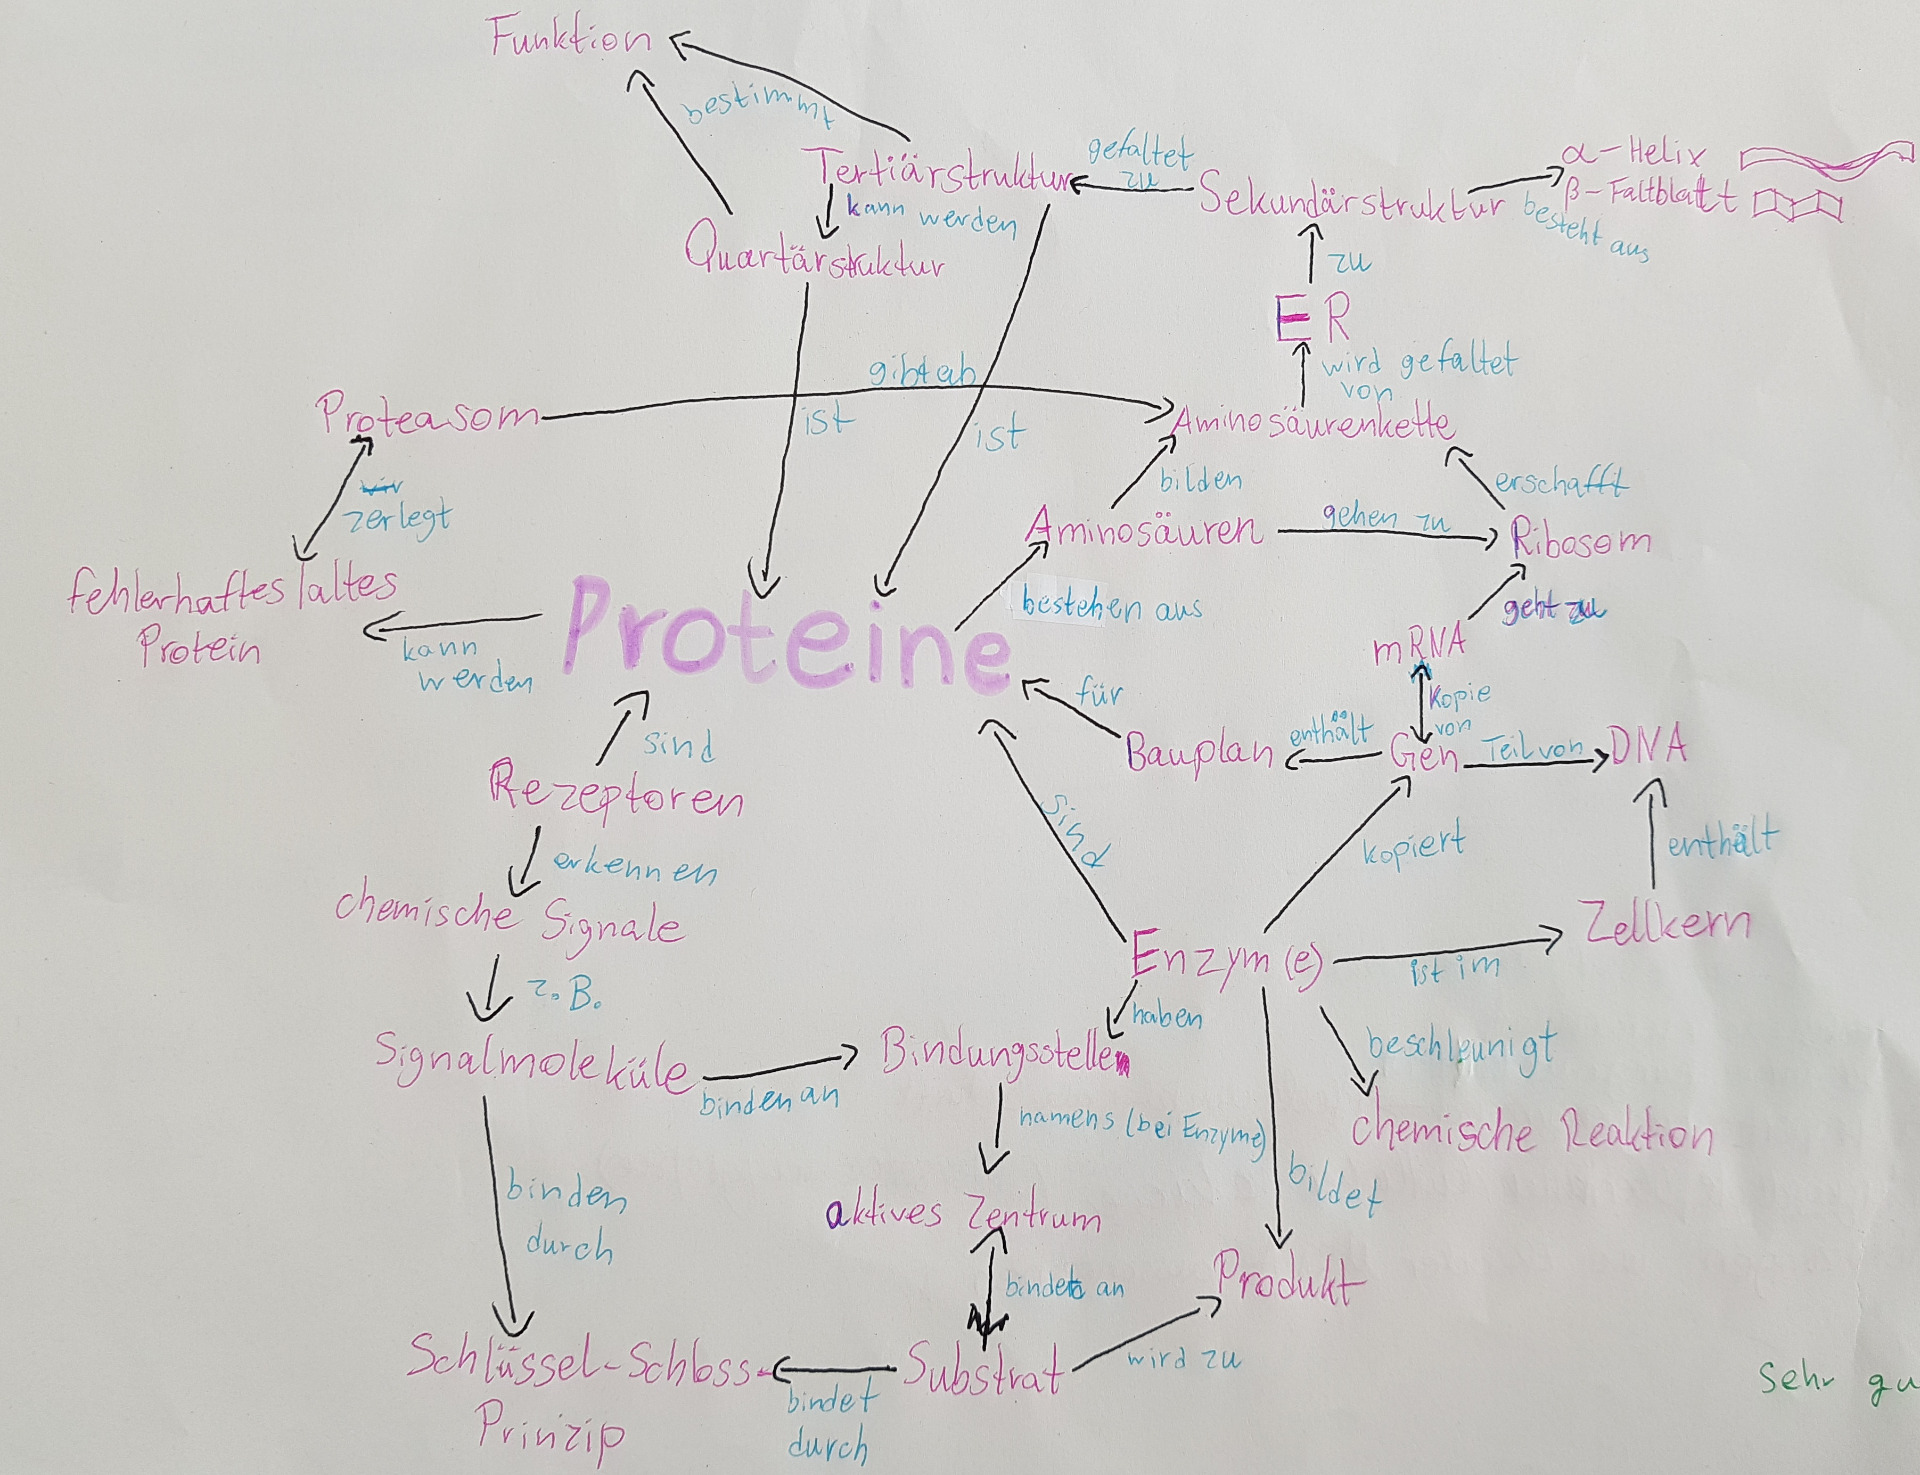 Funktion
bestimmt
Tertiärstruktur
gefaltet
zu
Sekundärstruktur
α-Helix
β-Faltblatt
besteht aus
kann werden
Quartärstruktur
zu
ER
wird gefaltet
von
gibt ab
Proteasom
ist
ist
Aminosäurenkette
zerlegt
bilden
erschafft
Aminosäuren
gehen zu
Ribosom
fehlerhaftes/altes
Protein
kann
werden
Proteine
bestehen aus
geht zu
mRNA
Kopie
von
für
Bauplan
enthält
Gen
Teil von
DNA
sind
Rezeptoren
sind
kopiert
enthält
erkennen
chemische Signale
Enzym(e)
ist im
Zellkern
z.B.
haben
Signalmoleküle
binden an
Bindungsstellen
beschleunigt
namens (bei Enzyme)
chemische Reaktion
binden
durch
aktives Zentrum
bildet
bindet an
Produkt
Schlüssel-Schloss-
Prinzip
bindet
durch
Substrat
wird zu
Sehr gu